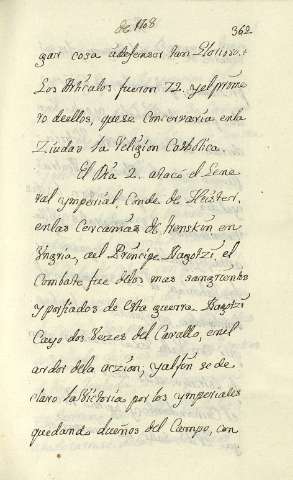 de 1708
362
gar cosa a defensor tan Glorioso.
Los Articulos fueron 72. y el prime
ro de ellos, que se Concervaria en la
Ziudad la Religion Catholica.
El Dia 2. ataco el Gene
ral ymperial, Conde de Heisteri,
en las Cercanias de Honskin en
Vngria, al Principe Ragotzi, el
Combate fue de los mas sangrientos
y porfiados de Esta guerra Ragotzi
Cayo dos Vezes del Cavallo, en el
ardor de la aczion, y al fin se de
claro la Victoria por los ymperiales
quedando dueños del Campo, con